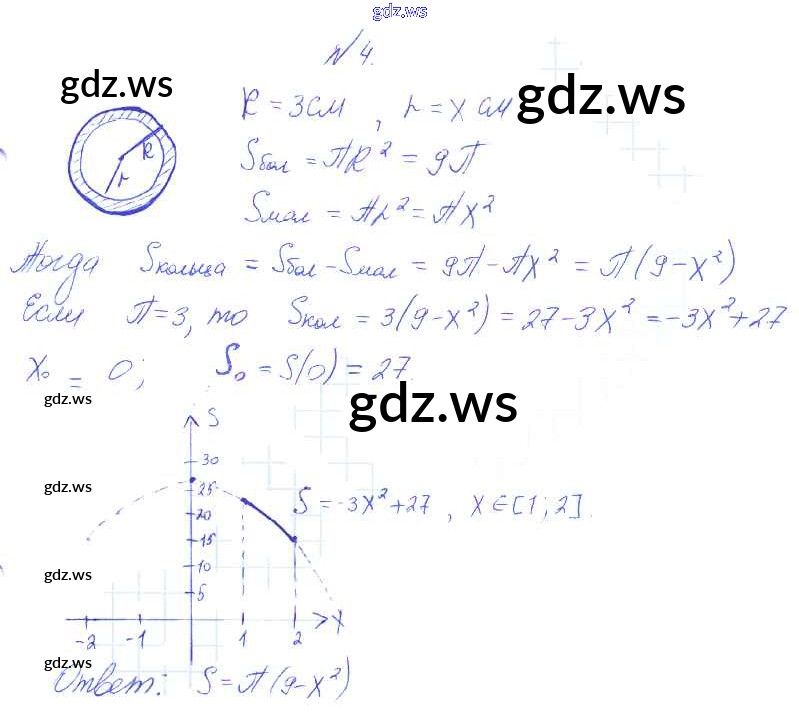 gdz.ws
№ 4.
gdz.ws
gdz.ws
R = 3см, r = x см
R
r
Sбол = ПR² = 9П
Sмал = Пr² = Пx²
Тогда Sкольца = Sбол - Sмал = 9П - Пx² = П(9 - x²)
Если П = 3, то Sкол = 3(9 - x²) = 27 - 3x² = -3x² + 27
x₀ = 0; S₀ = S(0) = 27.
gdz.ws
gdz.ws
S
30
25
20
15
10
5
S = -3x² + 27, x ∈ [1; 2].
gdz.ws
gdz.ws
-2 -1 1 2 x
gdz.ws
Ответ: S = П(9 - x²)